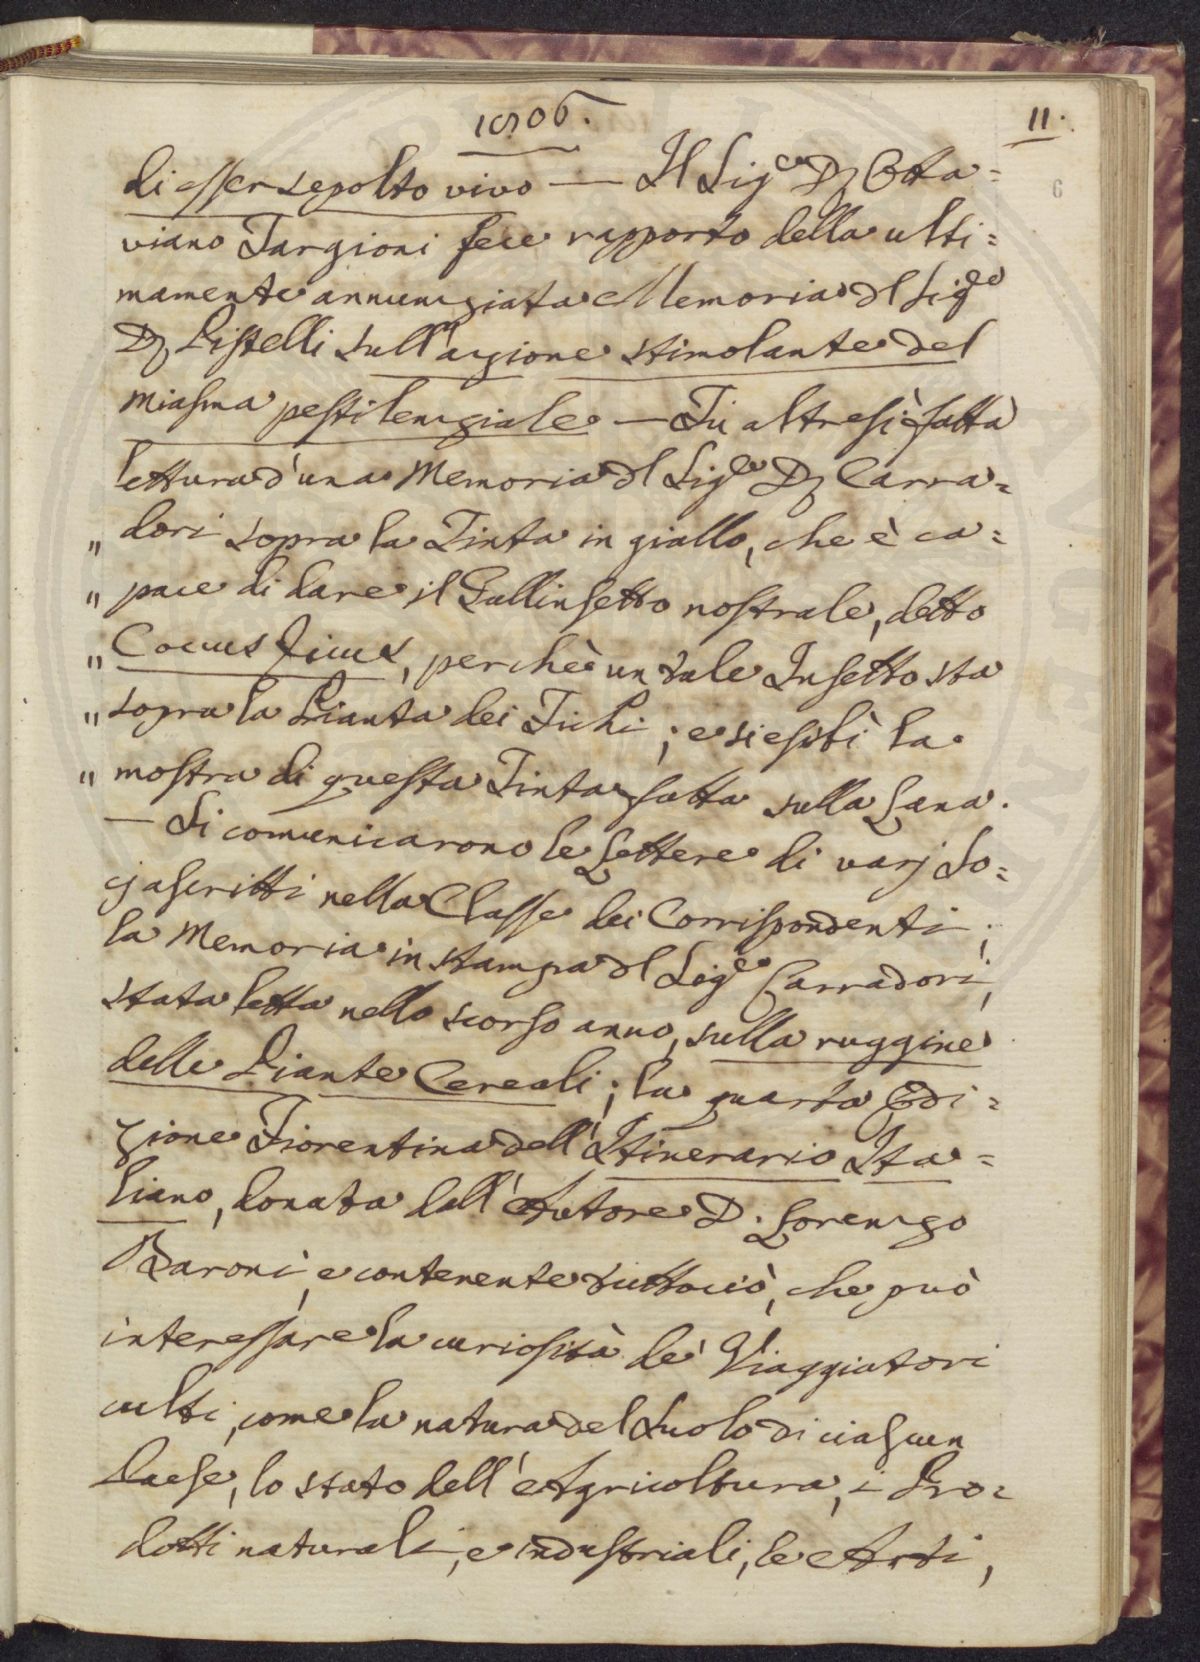 1806.
11.
6
di esser sepolto vivo — Il Sig.re D. Otta=
viano Targioni fece rapporto della ulti=
mamente annunziata Memoria del Sig.re
D. Pistelli sull'azione stimolante del
miasma pestilenziale — Fu altresì fatta
lettura d'una Memoria del Sig.re D. Carra=
„ dori sopra la Tinta in giallo, che è ca=
„ pace di dare il Gallinsetto nostrale, detto
„ Coccus ficus, perchè un tale Insetto sta
„ sopra la Pianta dei Fichi; e si esibì la
„ mostra di questa Tinta fatta sulla Lana.
— Si comunicarono le Lettere di varj So=
cj ascritti nella Classe dei Corrispondenti;
la Memoria in stampa del Sig.re Carradori,
stata letta nello scorso anno, sulla ruggine
delle Piante Cereali; la quarta Edi=
zione Fiorentina dell'Itinerario Ita=
liano, donata dall'Autore D. Lorenzo
Baroni, e contenente tuttociò, che può
interessare la curiosità de' Viaggiatori
culti, come la natura del Suolo di ciascun
Paese, lo stato dell'Agricoltura, i Pro=
dotti naturali, e industriali, le Arti,